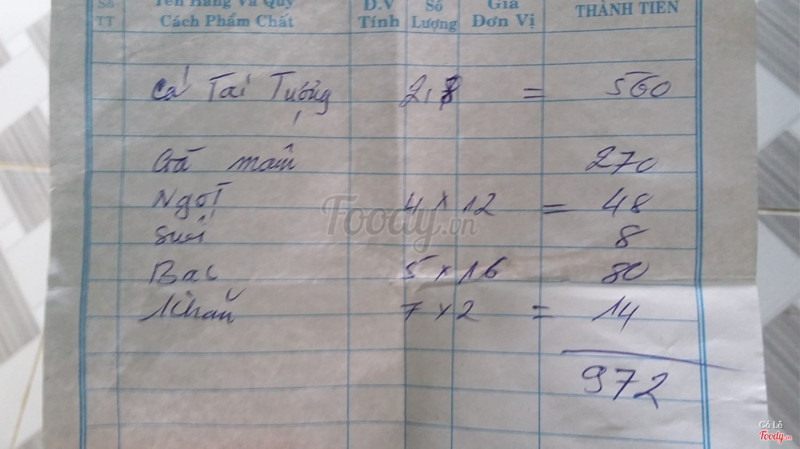 Số TT Tên Hàng Và Quy Cách Phẩm Chất Đ.V Tính Số Lượng Giá Đơn Vị THÀNH TIỀN
Cá Tai Tượng 2,8 = 560
Gà mâm 270
Ngọt 4 x 12 = 48
Suối 8
Bạc 5 x 16 80
Khăn 7 x 2 = 14
972
Foody.vn
Cỏ Lê
Foody.vn